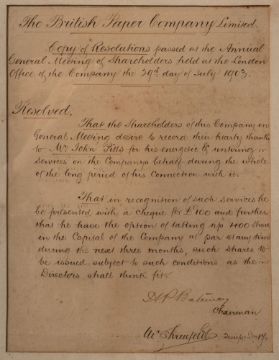 The British Paper Company Limited.
Copy of Resolutions passed at the Annual
General Meeting of Shareholders held at the London
Office of the Company the 29th day of July 1903.
Resolved.
That the Shareholders of this Company in
General Meeting desire to record their hearty thanks
to Mr John for his energies & untiring
services on the Company's behalf during the whole
of the long period of his connection with it.
That in recognition of such services he
be presented with a cheque for £100 and further
that he have the option of taking up 400 shares
in the Capital of the Company at par any time
during the next three months, such shares to
be issued subject to such conditions as the
Directors shall think fit.
Chairman